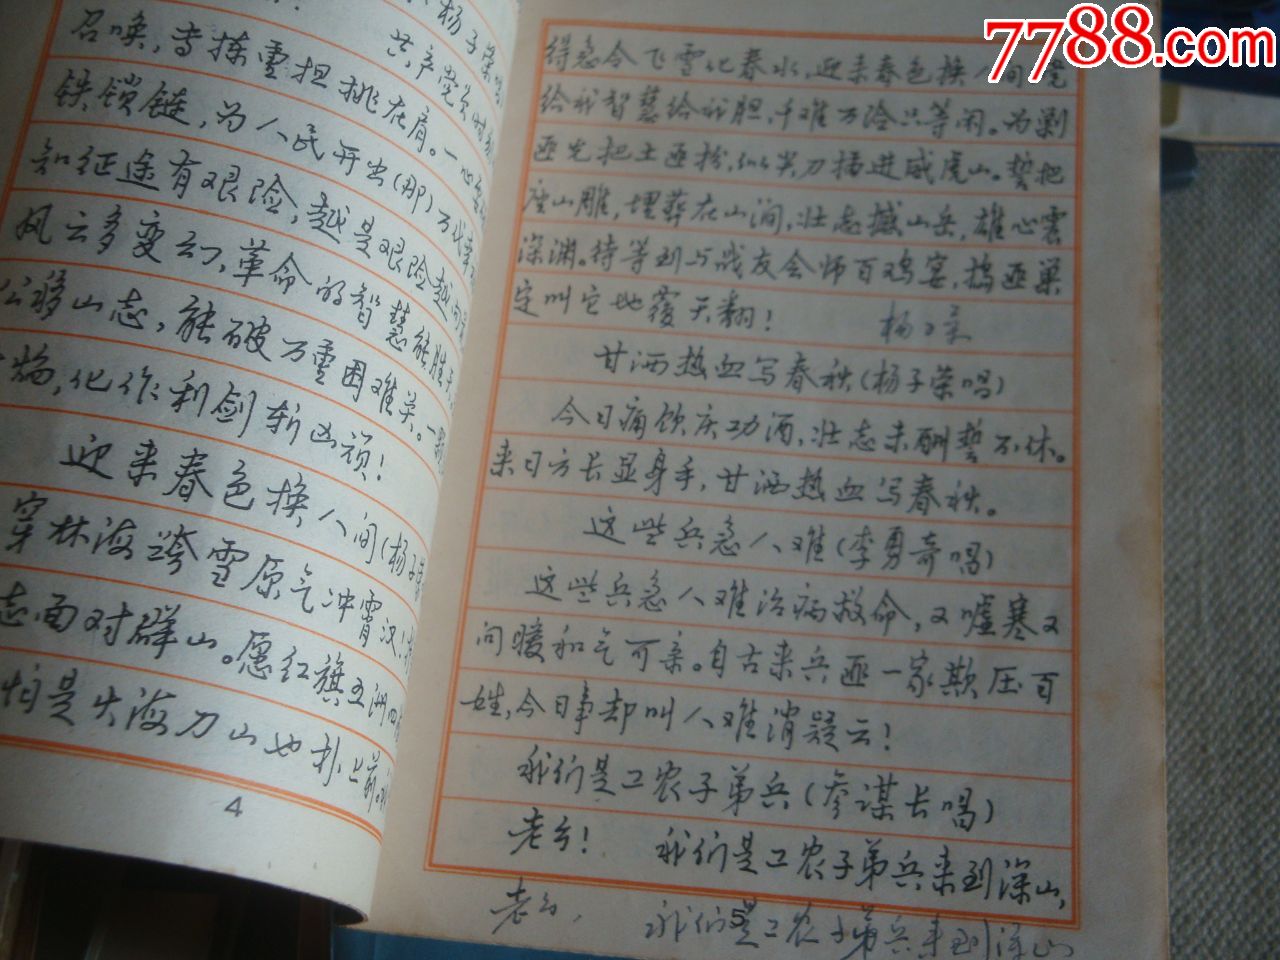 7788.com
杨子荣
共产党
召唤,专拣重担挑在肩。一心
铁锁链,为人民开出(那)万代
知征途有艰险,越是艰险越向
风云多变幻,革命的智慧能胜
公移山志,能破万重困难关。一
化作利剑斩凶顽!
迎来春色换人间(杨子荣
穿林海跨雪原气冲霄汉!
志面对群山。愿红旗五洲四
怕是火海刀山也扑上前。
4
得急令飞雪化春水,迎来春色换人间。党
给我智慧给我胆,千难万险只等闲。为剿
匪先把土匪扮,似尖刀插进威虎山。誓把
座山雕,埋葬在山涧,壮志撼山岳,雄心震
深渊。待等到与战友会师百鸡宴,捣匪巢
定叫它地覆天翻! 杨子荣
甘洒热血写春秋(杨子荣唱)
今日痛饮庆功酒,壮志未酬誓不休。
来日方长显身手,甘洒热血写春秋。
这些兵急人难(李勇奇唱)
这些兵急人难治病救命,又嘘寒又
问暖和气可亲。自古来兵匪一家欺压百
姓,今日事却叫人难消疑云!
我们是工农子弟兵(参谋长唱)
老乡! 我们是工农子弟兵来到深山,
老乡, 我们是工农子弟兵来到深山
5